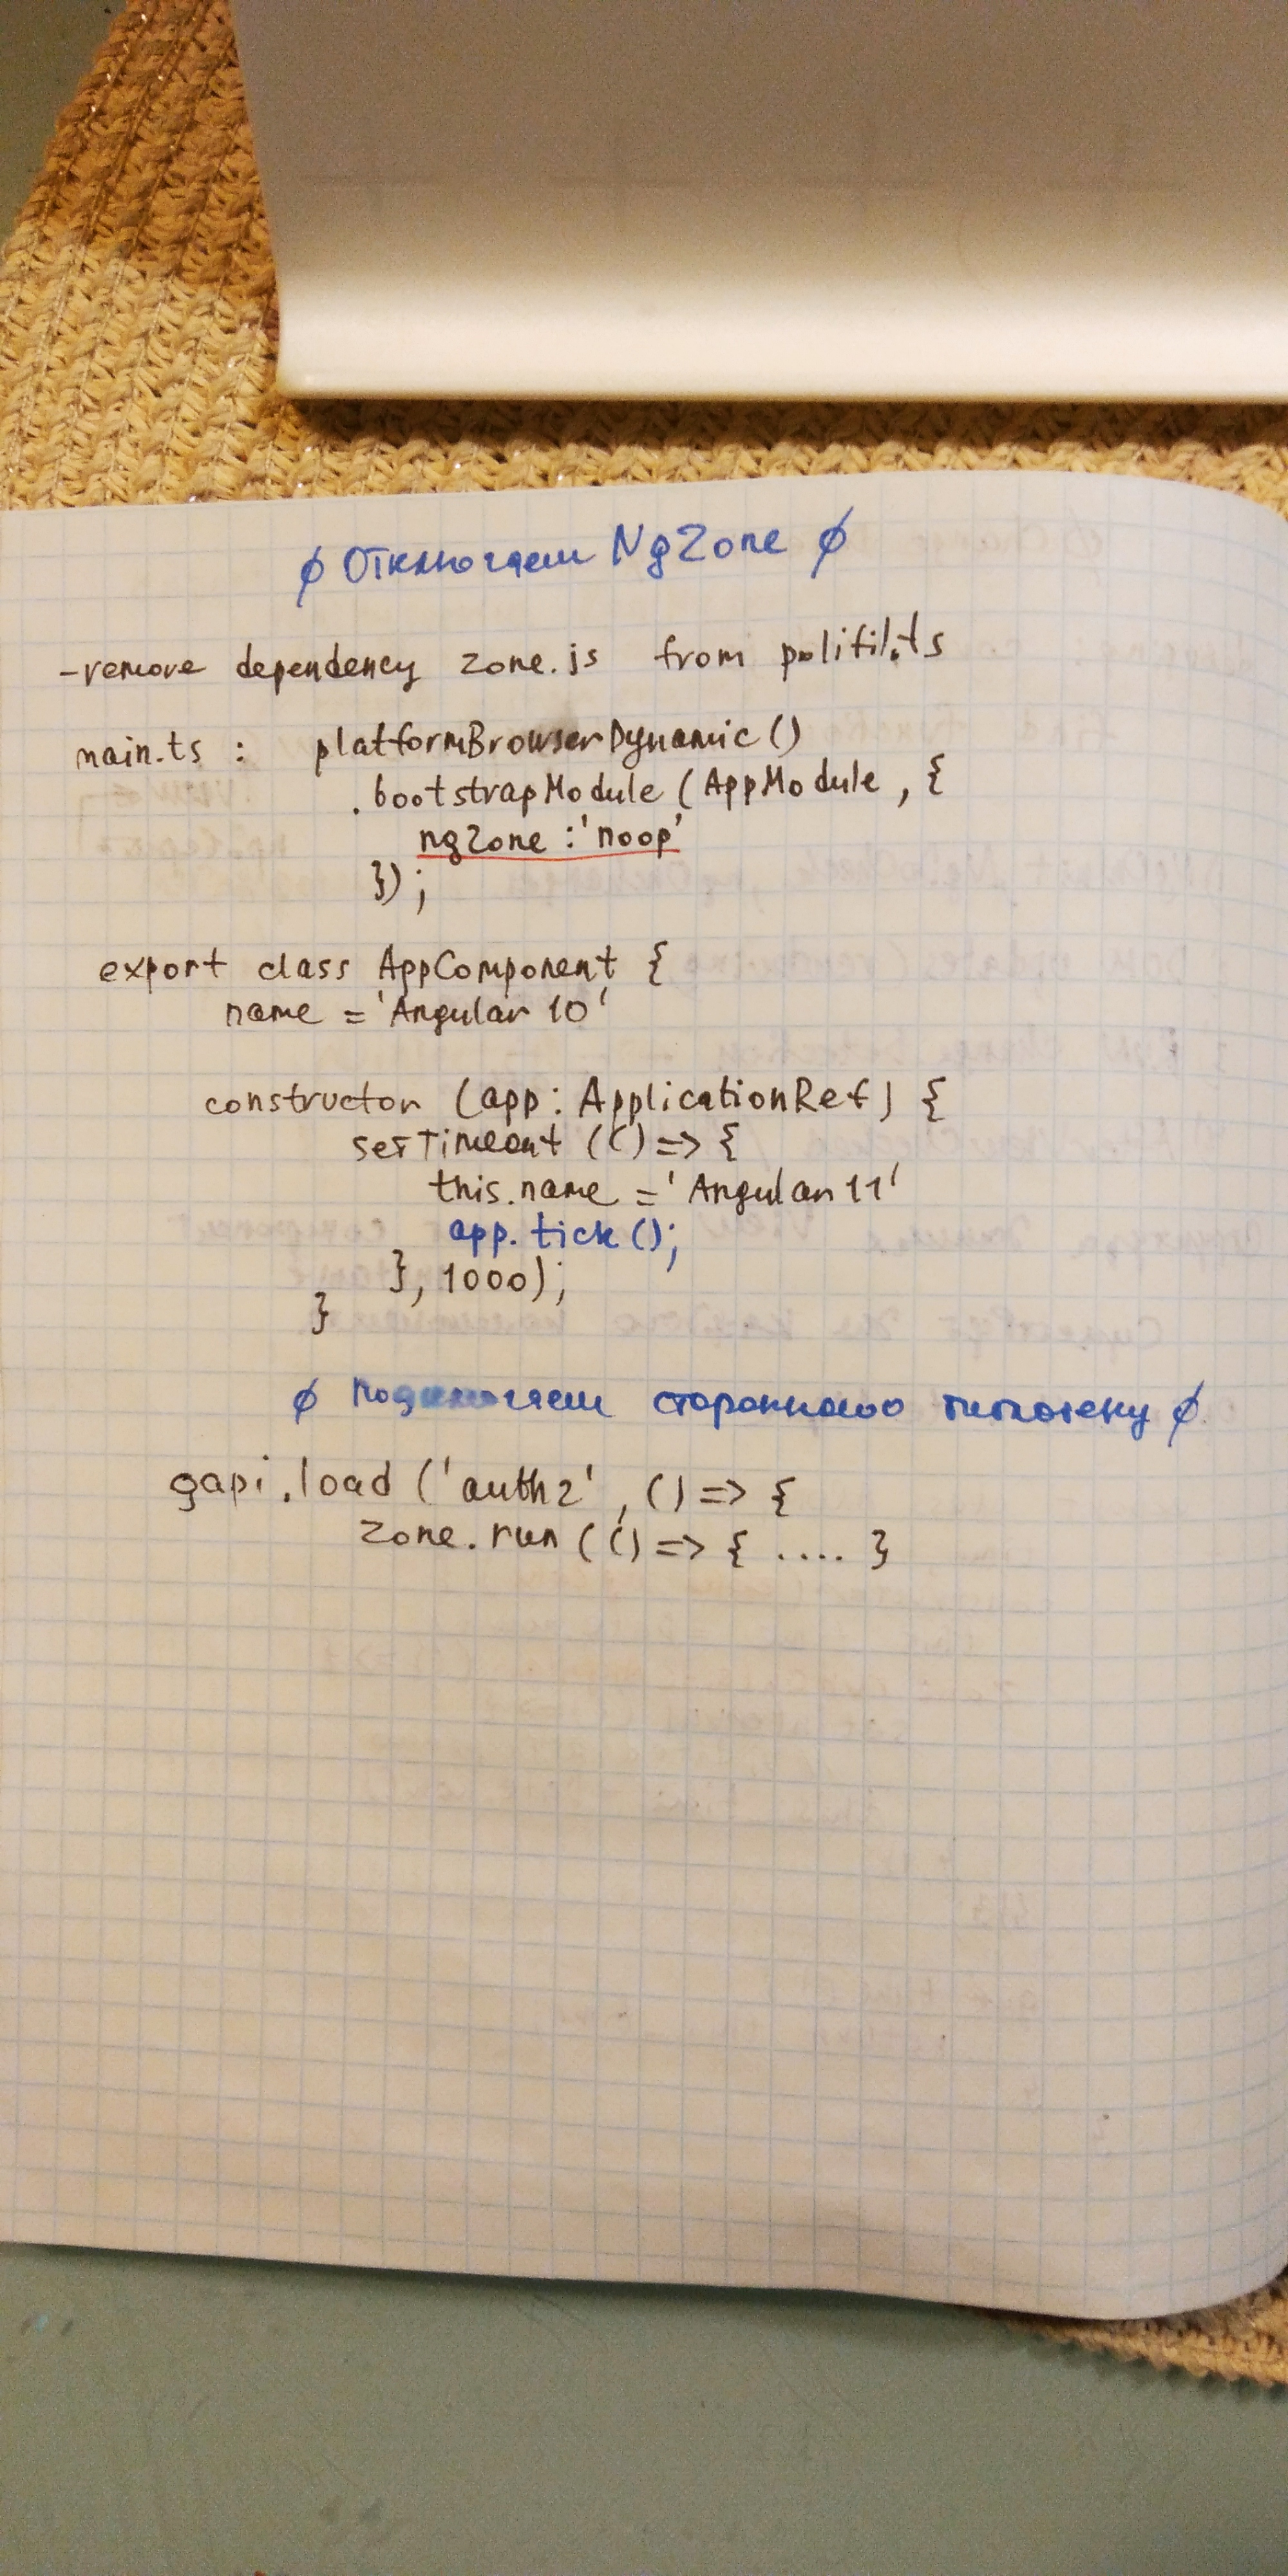 ∅ Отключаем NgZone ∅
-remove dependency zone.js from polifil.ts
main.ts : platformBrowserDynamic()
.bootstrapModule (AppModule, {
ngZone :'noop'
});
export class AppComponent {
name = 'Angular 10'
constructor (app: ApplicationRef) {
setTimeout (() => {
this.name = 'Angular 11'
app.tick();
}, 1000);
}
∅ Подключаем стороннюю библиотеку ∅
gapi.load ('auth2', () => {
zone.run (() => { .... }